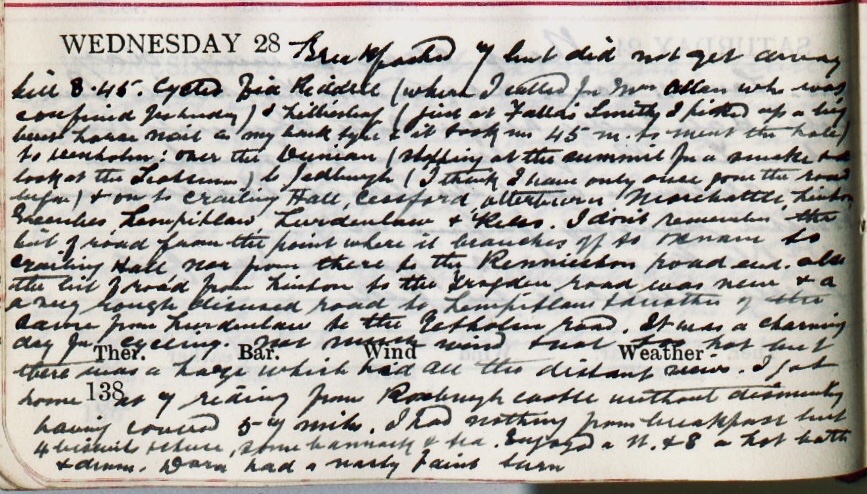 WEDNESDAY 28 Breakfasted 7 but did not get away
till 8.45. Cycled via Riddell (where I called for Mrs Allan who was
confined yesterday) & Lilliesleaf (just at Falla's Smithy I picked up a big
horse nail in my back tyre & it took me 45 m. to mend the hole)
to Denholm: over the Dunian (stopping at the summit for a smoke & a
look at the ) to Jedburgh (I think I have only once gone the road
before) & on to Crailing Hall, Cessford, Otterburn, Morebattle, Linton,
Greenlees, Lempitlaw, Lurdenlaw & Kelso. I don't remember the
bit of road from the point where it branches off to Oxnam to
Crailing Hall nor from there to the road end. also
the bit of road from Linton to the Graden road was new & a
a very rough disused road to Lempitlaw & another of the
same from Lurdenlaw to the Yetholm road. It was a charming
day for cycling. not much wind & not too hot but
Ther. Bar. Wind Weather
there was a haze which hid all the distant views. I got
138
home at 7 riding from Roxburgh castle without dismounting
having covered 57 miles. I had nothing from breakfast but
4 biscuits & cheese, some bannock & tea. Enjoyed a H. & E a hot bath
& dram. Dora had a nasty faint turn